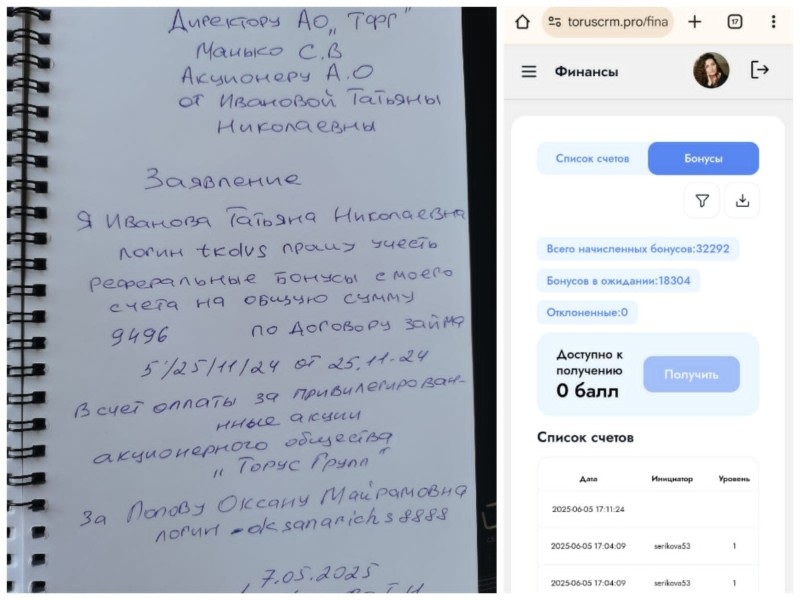 Директору АО „ТФГ"
Манько С.В
Акционеру А.О
от Ивановой Татьяны
Николаевны
Заявление
Я Иванова Татьяна Николаевна
логин tkdvs прошу учесть
реферальные бонусы с моего
счета на общую сумму
9496 по Договору займа
5/25/11/24 от 25.11.24
В счет оплаты за привилегирован-
нные акции
акционерного общества
„Торус Групп"
За Попову Оксану Майрамовна
логин - oksanarichs8888
7.05.2025
toruscrm.pro/fina
17
Финансы
Список счетов
Бонусы
Всего начисленных бонусов:32292
Бонусов в ожидании:18304
Отклоненные:0
Доступно к
получению
0 балл
Получить
Список счетов
Дата Инициатор Уровень
2025-06-05 17:11:24
2025-06-05 17:04:09 serikova53 1
2025-06-05 17:04:09 serikova53 1